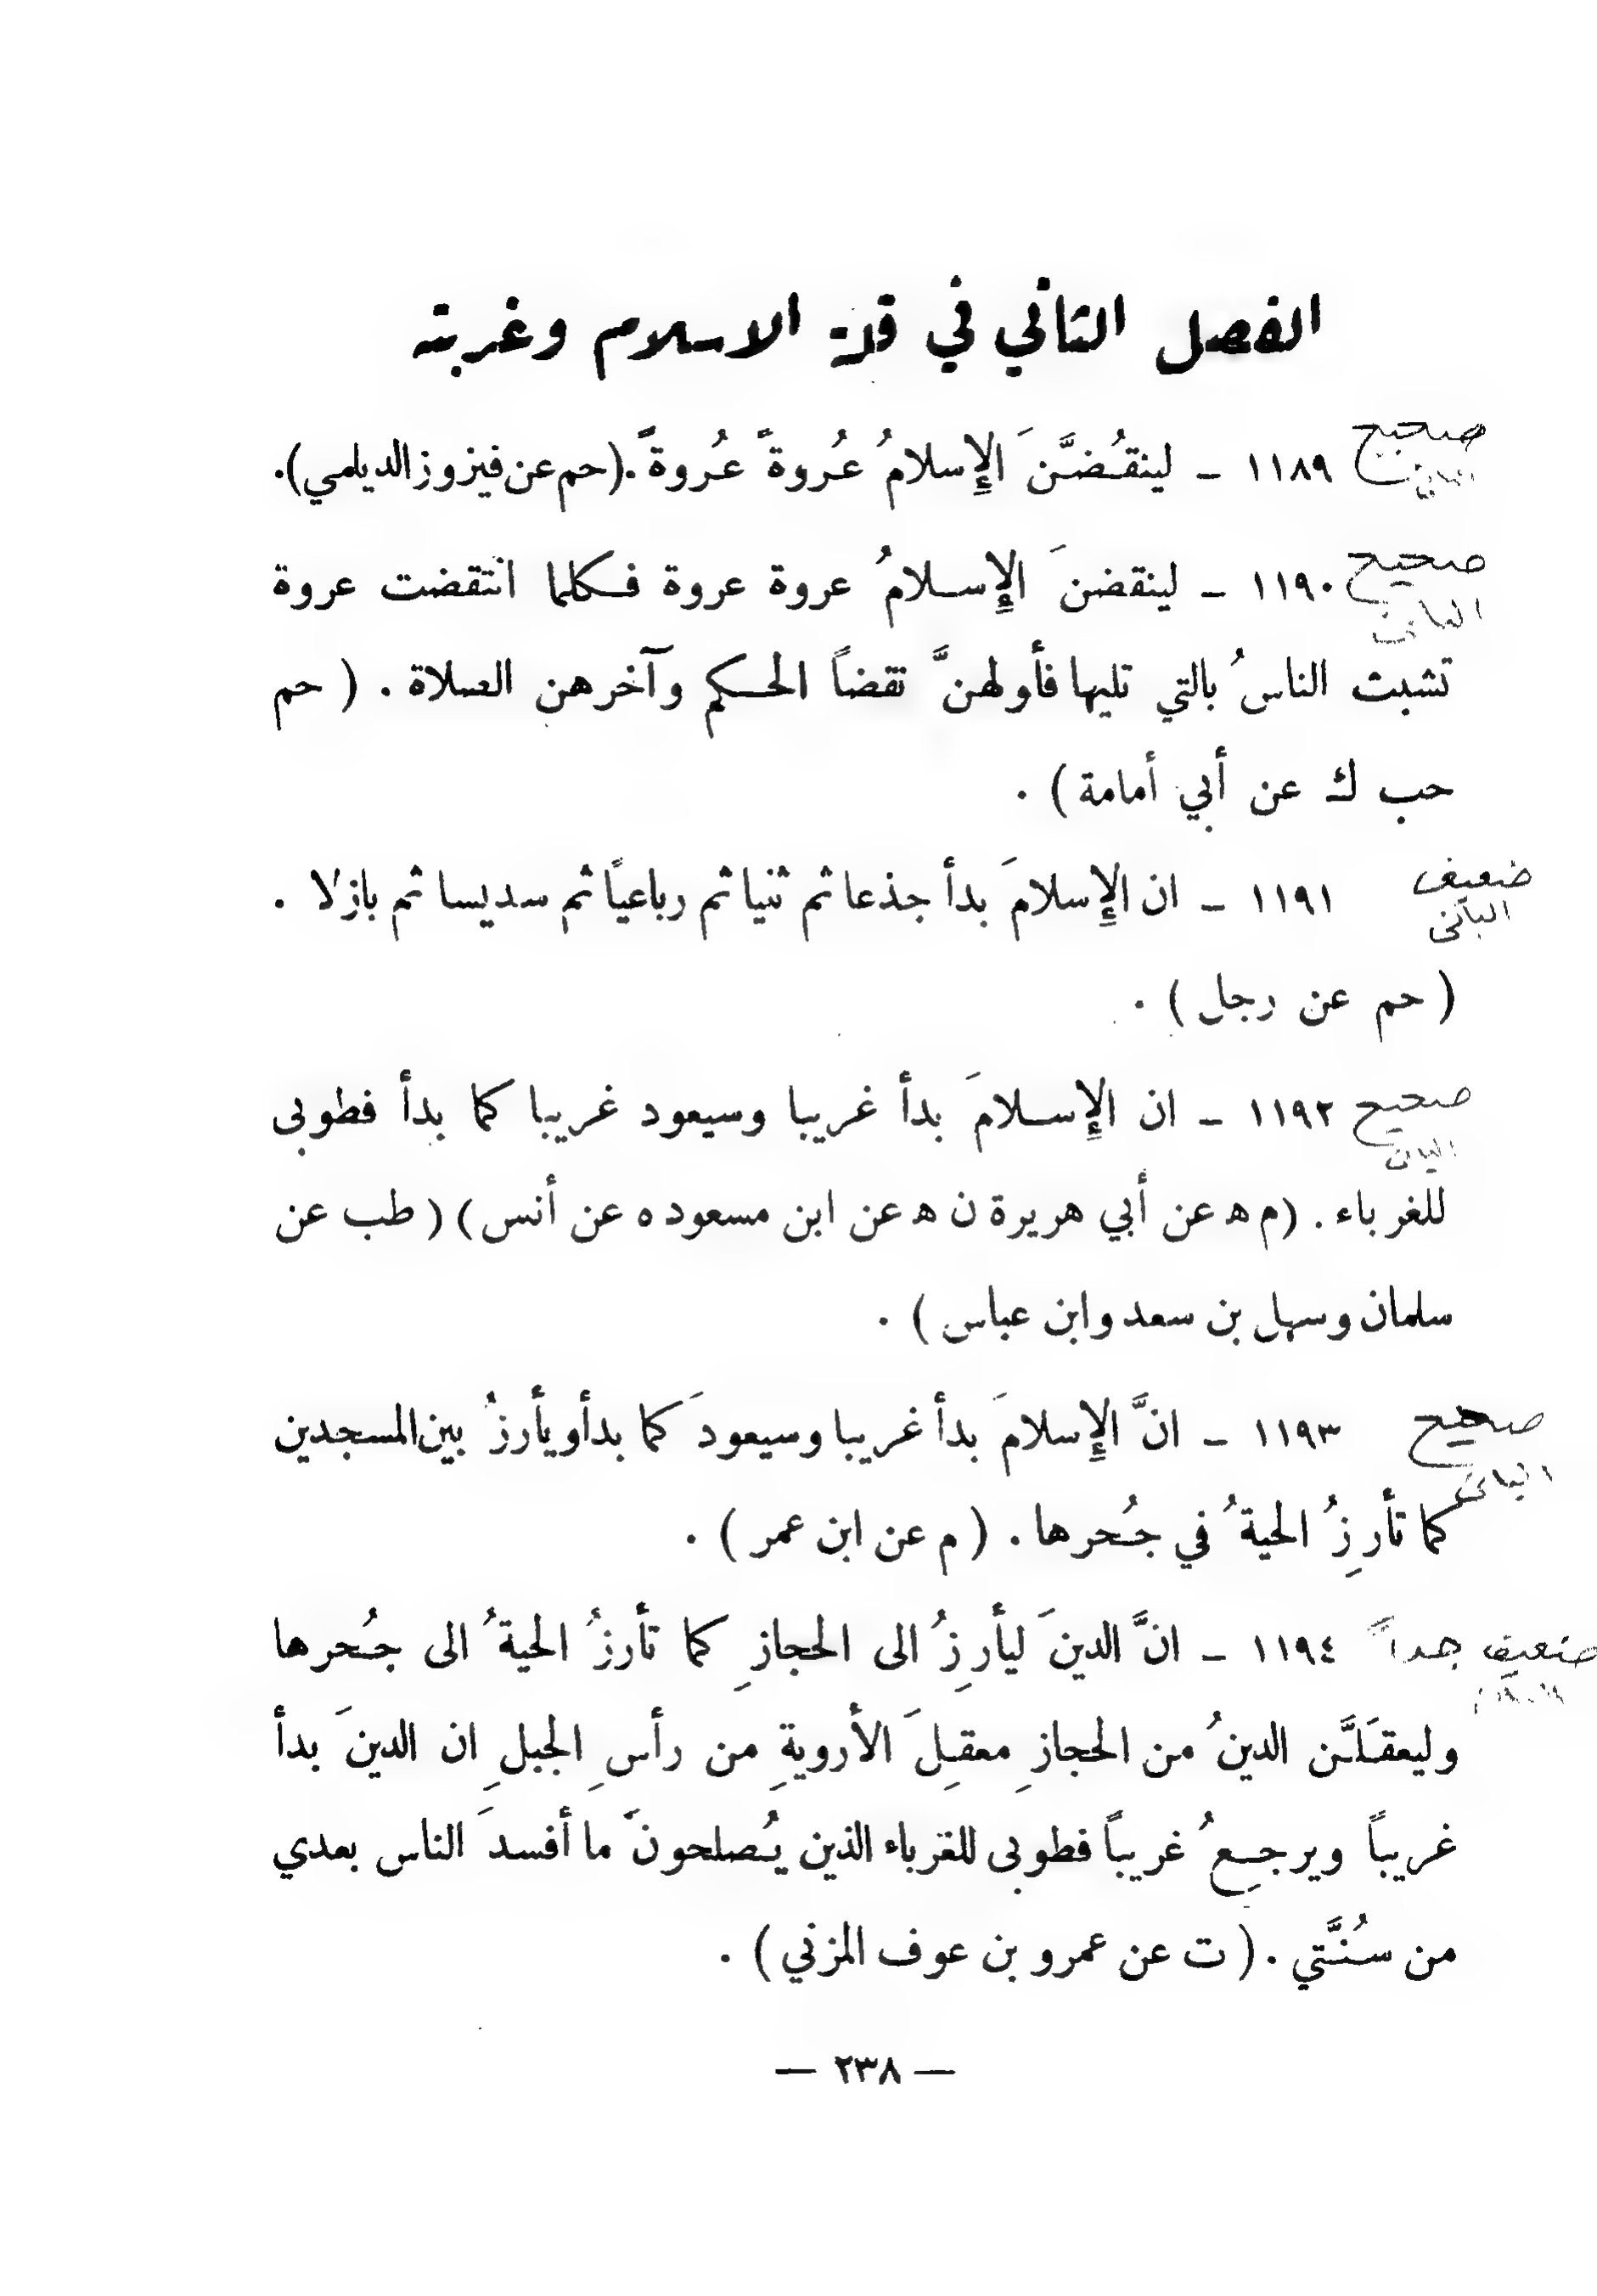 الفصل الثاني في قلة الاسلام وغربته
صحيح
١١٨٩ – لينقُضَّنَ الإِسلامُ عُروةً عُروةً. (حم عن فيروز الديلمي).
صحيح
البانى
١١٩٠ – لينقضنَ الإِسلامُ عروة عروة فكلما انتقضت عروة
تشبث الناسُ بالتي تليها فأولهنَّ نقضاً الحكم وآخرهن الصلاة. ( حم
حب ك عن أبي أمامة ) .
ضعيف
البانى
١١٩١ – ان الإِسلامَ بدأ جذعا ثم ثنيا ثم رباعيًا ثم سديسا ثم بازلا .
( حم عن رجل ) .
صحيح
البانى
١١٩٢ – ان الإِسلامَ بدأ غريبا وسيعود غريبا كما بدأ فطوبى
للغرباء . (م ه عن أبي هريرة ن ه عن ابن مسعود ه عن أنس) ( طب عن
سلمان وسهل بن سعد وابن عباس ) .
صحيح
البانى
١١٩٣ – انَّ الإِسلامَ بدأ غريبا وسيعودَ كما بدأ ويأرزُ بين المسجدين
كما تأرِزُ الحيةُ في جُحرها . ( م عن ابن عمر ) .
ضعيف جداً
١١٩٤ – انَّ الدينَ ليأرِزُ الى الحجازِ كما تأرزُ الحيةُ الى جُحرها
وليعقَلَنَّ الدينُ من الحجازِ معقِلَ الأرويةِ من رأسِ الجبلِ ان الدينَ بدأ
غريباً ويرجِعُ غريباً فطوبى للغرباء الذين يُصلحونَ ما أفسدَ الناس بعدي
من سُنَّتي . ( ت عن عمرو بن عوف المزني ) .
— ٢٣٨ —